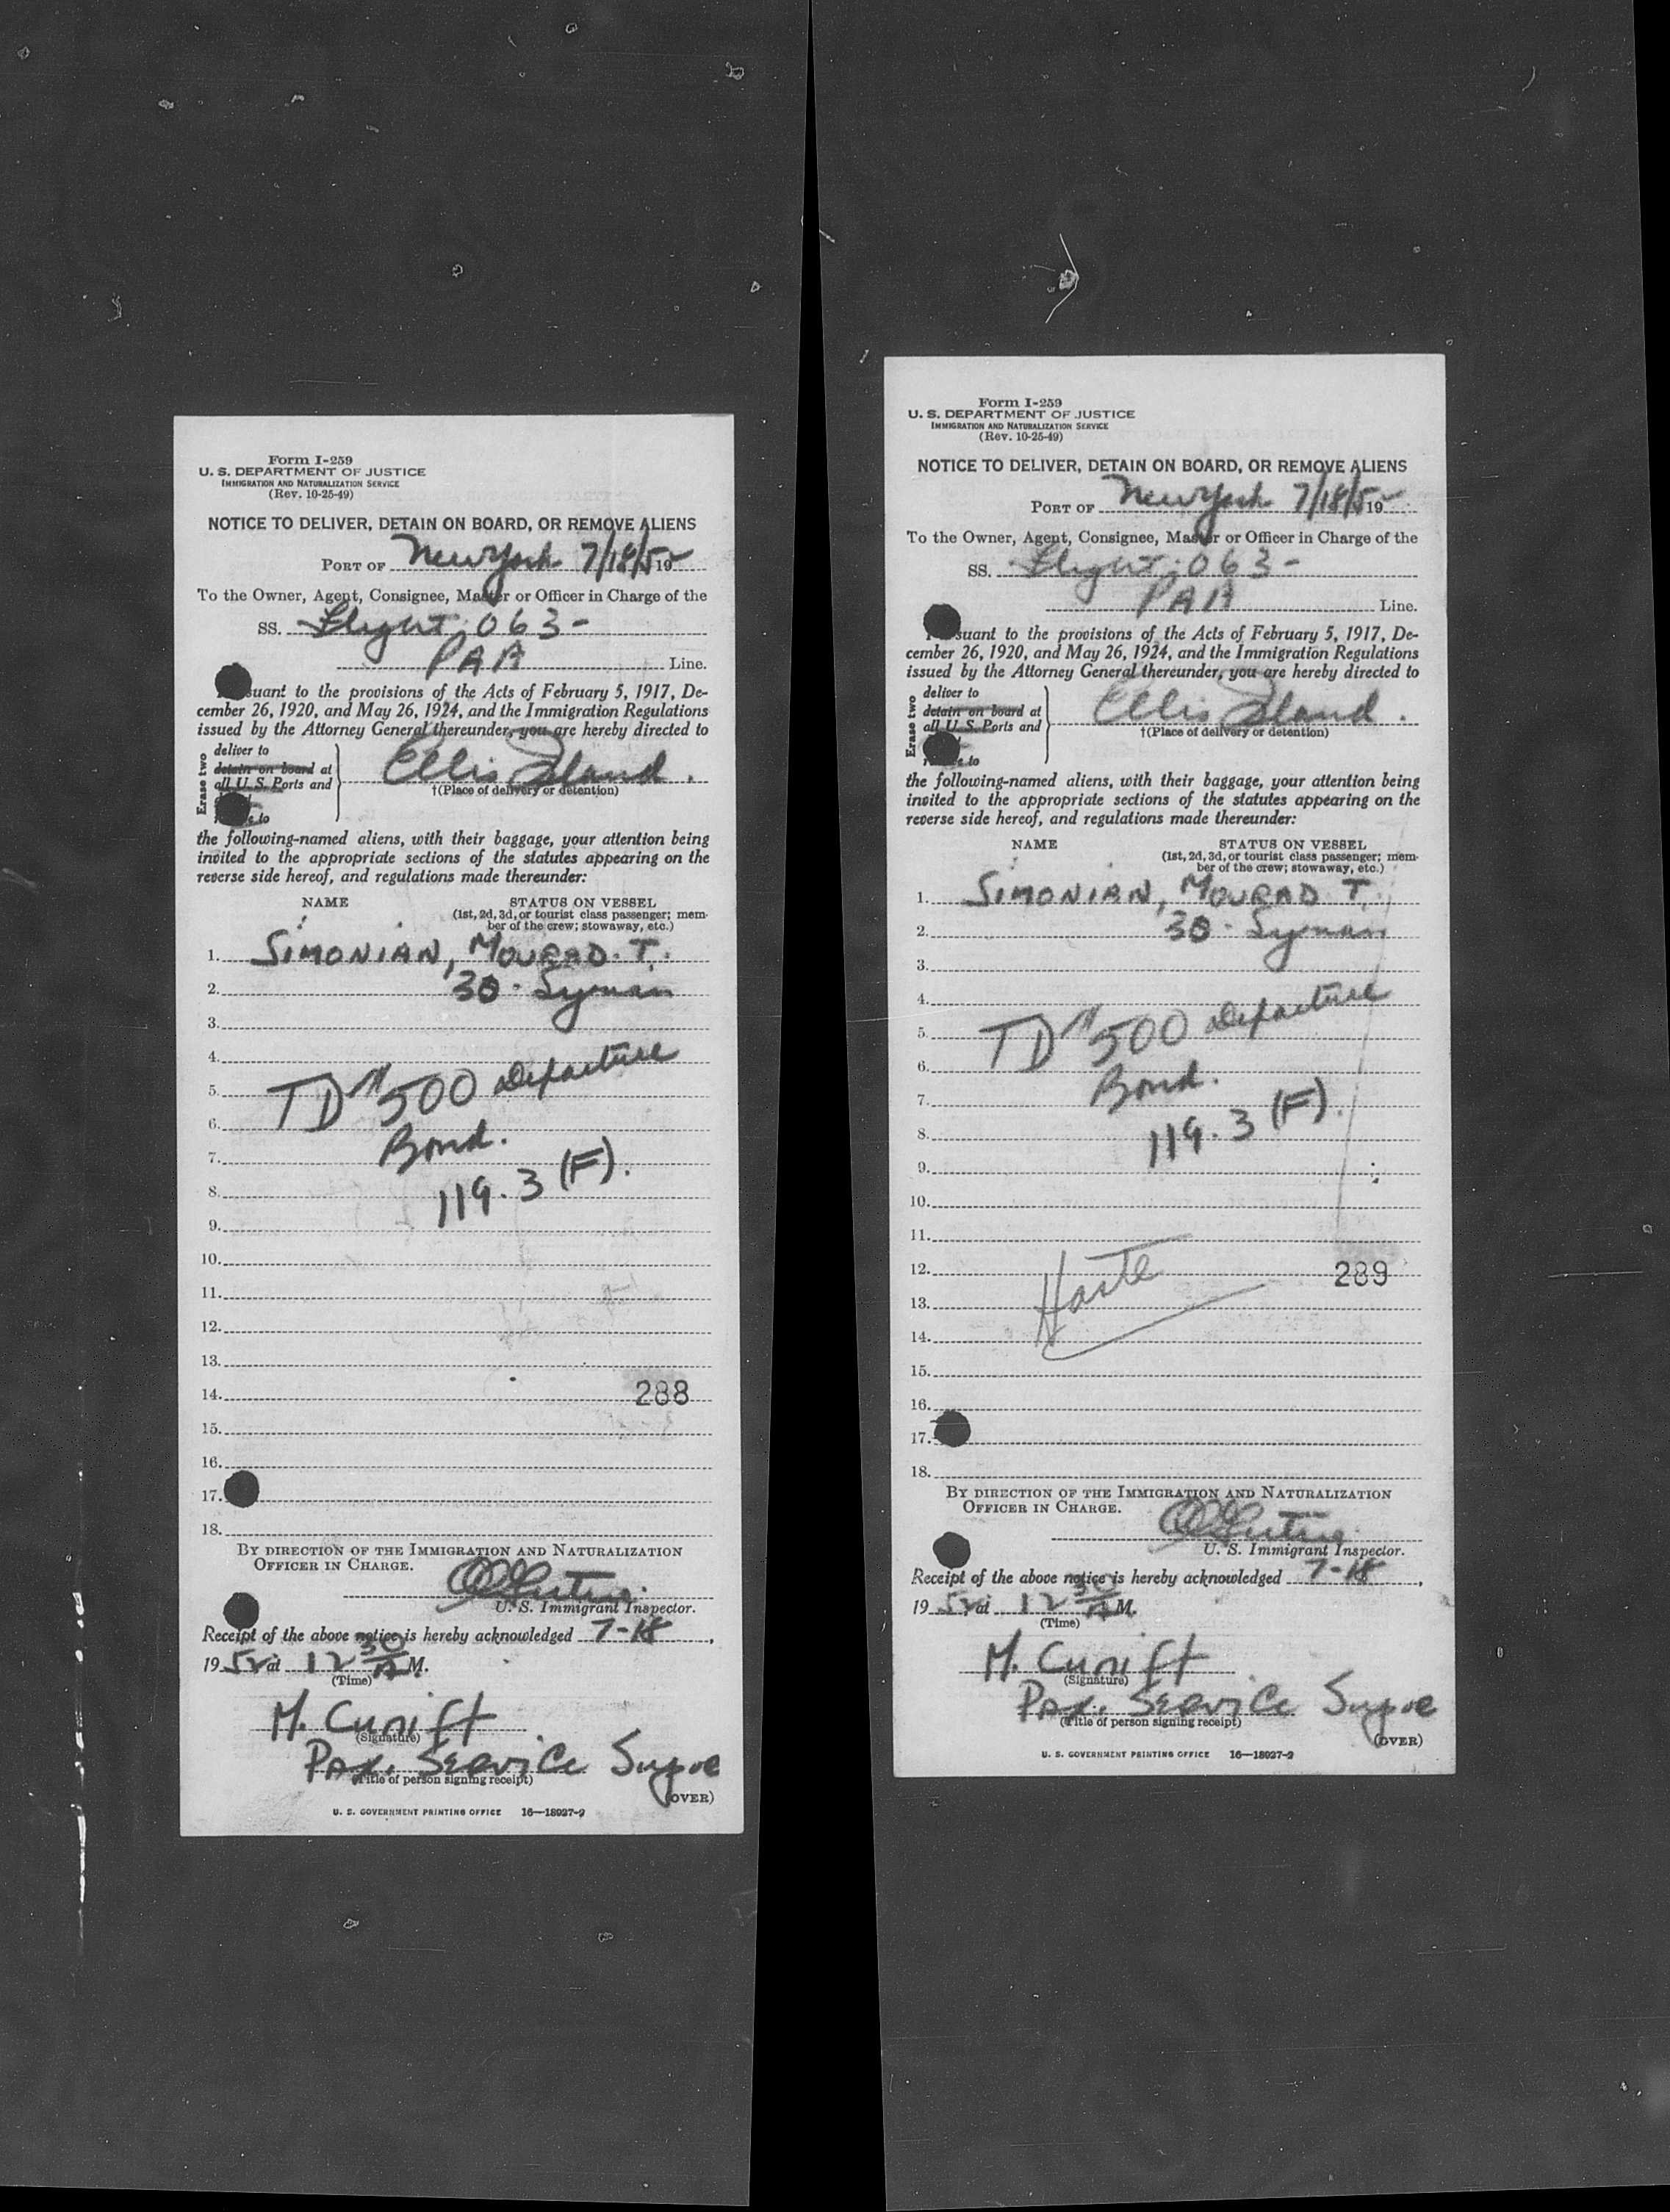 Form I-259
U. S. DEPARTMENT OF JUSTICE
IMMIGRATION AND NATURALIZATION SERVICE
(Rev. 10-25-49)
NOTICE TO DELIVER, DETAIN ON BOARD, OR REMOVE ALIENS
PORT OF New York 7/18/52 19
To the Owner, Agent, Consignee, Master or Officer in Charge of the
SS. Flight 063-
PAA Line.
suant to the provisions of the Acts of February 5, 1917, De-
cember 26, 1920, and May 26, 1924, and the Immigration Regulations
issued by the Attorney General thereunder, you are hereby directed to
Erase two
deliver to
detain on board at
all U. S. Ports and
to
Ellis Island.
†(Place of delivery or detention)
the following-named aliens, with their baggage, your attention being
invited to the appropriate sections of the statutes appearing on the
reverse side hereof, and regulations made thereunder:
NAME STATUS ON VESSEL
(1st, 2d, 3d, or tourist class passenger; mem-
ber of the crew; stowaway, etc.)
1. SIMONIAN, MOURAD. T.
2. 30 - Syrian
3.
4.
5. TD $500 Departure
6. Bond.
7.
8. 119.3 (F).
9.
10.
11.
12.
13.
14. 288
15.
16.
17.
18.
BY DIRECTION OF THE IMMIGRATION AND NATURALIZATION
OFFICER IN CHARGE.
U. S. Immigrant Inspector.
Receipt of the above notice is hereby acknowledged 7-18,
19 52 at 12 30 A M.
(Time)
M.
(Signature)
Pax. Service Supve
(Title of person signing receipt)
(OVER)
U. S. GOVERNMENT PRINTING OFFICE 16—18927-2
Form I-259
U. S. DEPARTMENT OF JUSTICE
IMMIGRATION AND NATURALIZATION SERVICE
(Rev. 10-25-49)
NOTICE TO DELIVER, DETAIN ON BOARD, OR REMOVE ALIENS
PORT OF New York 7/18/52 19
To the Owner, Agent, Consignee, Master or Officer in Charge of the
SS. Flight 063-
PAA Line.
suant to the provisions of the Acts of February 5, 1917, De-
cember 26, 1920, and May 26, 1924, and the Immigration Regulations
issued by the Attorney General thereunder, you are hereby directed to
Erase two
deliver to
detain on board at
all U. S. Ports and
to
Ellis Island.
†(Place of delivery or detention)
the following-named aliens, with their baggage, your attention being
invited to the appropriate sections of the statutes appearing on the
reverse side hereof, and regulations made thereunder:
NAME STATUS ON VESSEL
(1st, 2d, 3d, or tourist class passenger; mem-
ber of the crew; stowaway, etc.)
1. SIMONIAN, MOURAD T.
2. 30 - Syrian
3.
4.
5. TD $500 Departure
6. Bond.
7.
8. 119.3 (F).
9.
10.
11.
12. Haste 289
13.
14.
15.
16.
17.
18.
BY DIRECTION OF THE IMMIGRATION AND NATURALIZATION
OFFICER IN CHARGE.
U. S. Immigrant Inspector.
Receipt of the above notice is hereby acknowledged 7-18,
19 52 at 12 30 A M.
(Time)
M.
(Signature)
Pax. Service Supve
(Title of person signing receipt)
(OVER)
U. S. GOVERNMENT PRINTING OFFICE 16—18927-2